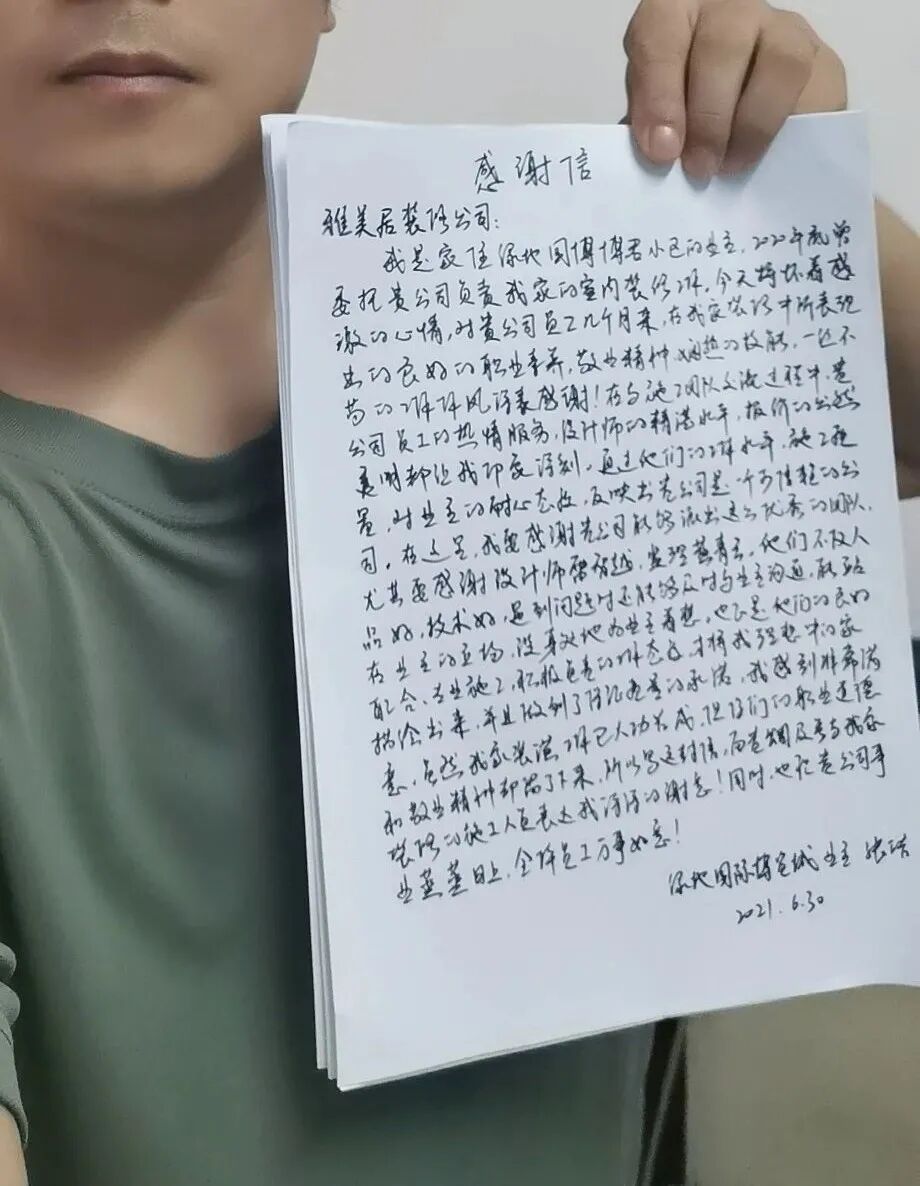 感谢信
雅美居装饰公司:
我是家住绿地国博博君小区的业主,2020年底曾
委托贵公司负责我家的室内装修工作,今天特怀着感
激的心情,对贵公司员工几个月来,在我家装修中所表现
出的良好的职业素养,敬业精神,娴熟的技能,一丝不
苟的工作作风深表感谢!在与施工团队交流过程中,贵
公司员工的热情服务,设计师的精湛水平,报价的公然
透明都让我印象深刻,通过他们的工作水平,施工质
量,对业主的耐心态度,反映出贵公司是一个可信赖的公
司,在这里,我要感谢贵公司能够派出这么优秀的团队,
尤其要感谢设计师 超越,监理 青云,他们不仅人
品好,技术好,遇到问题时还能够及时与业主沟通,能站
在业主的立场,设身处地为业主着想,也正是他们的良好
配合、专业施工,积极负责的工作态度,才将我理想中的家
描绘出来,并且做到了 的承诺,我感到非常满
意,虽然我家装潢工作已大功告成,但你们的职业道德
和敬业精神却留了下来,所以写这封信,向 及参与我家
装修的施工人员表达我深深的谢意!同时,也祝贵公司事
业蒸蒸日上,全体员工万事如意!
绿地国际博览城 业主 张洁
2021.6.30